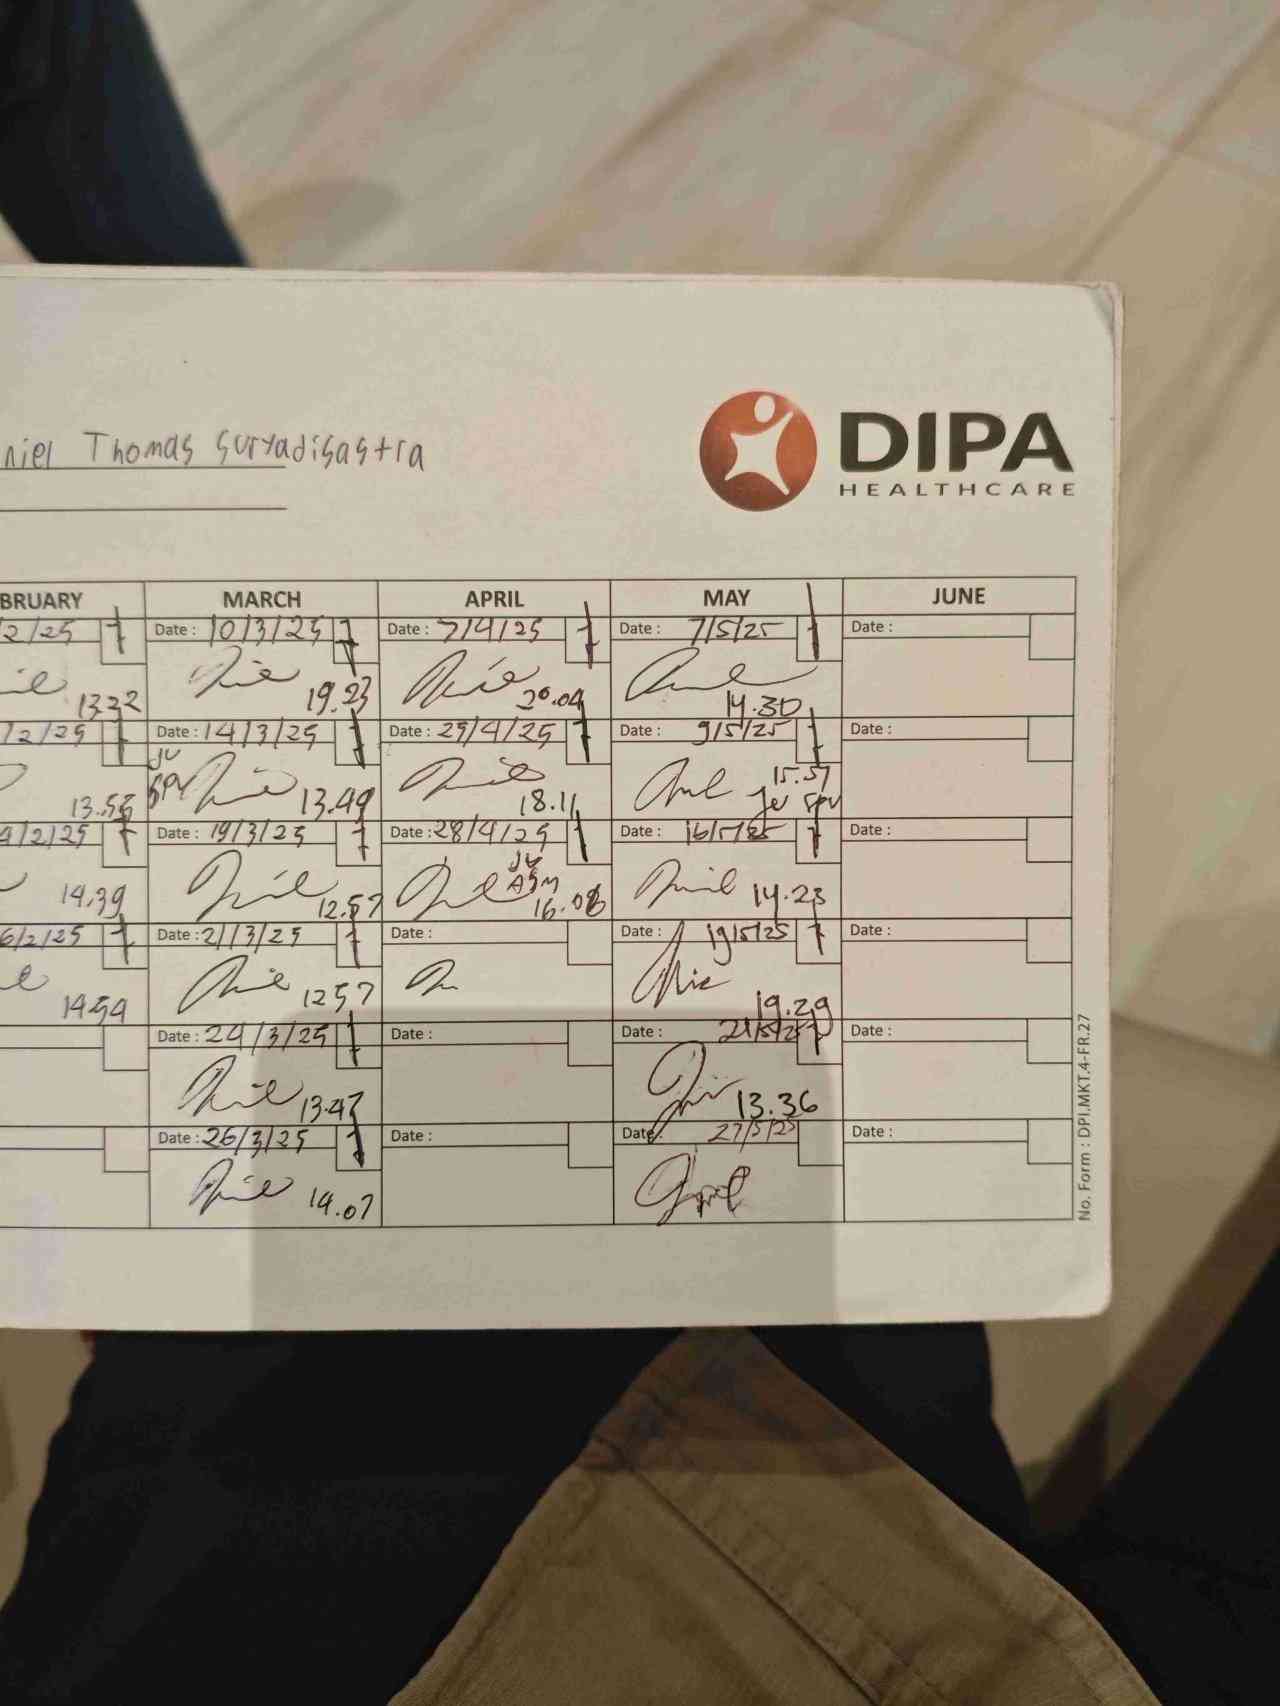 niel Thomas Suryadisastra
DIPA
HEALTHCARE
BRUARY MARCH APRIL MAY JUNE
/2/25 Date : 10/3/25 Date : 7/4/25 Date : 7/5/25 Date :
13.22 19.23 20.04 14.30
/2/25 Date : 14/3/25 Date : 25/4/25 Date : 9/5/25 Date :
JV
13.55 SPV 13.49 18.11 15.57
JV SPV
4/2/25 Date : 19/3/25 Date : 28/4/25 Date : 16/5/25 Date :
JV
ASM
14.39 12.57 16.08 14.23
6/2/25 Date : 21/3/25 Date : Date : 19/5/25 Date :
14.54 12.57 19.29
Date : 24/3/25 Date : Date : 21/5/25 Date :
13.47 13.36
Date : 26/3/25 Date : Date : 27/5/25 Date :
14.07
No. Form : DPI.MKT.4-FR.27